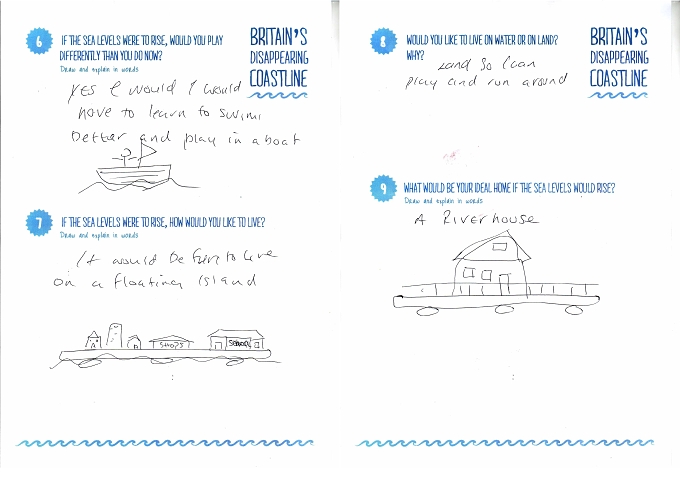 6
IF THE SEA LEVELS WERE TO RISE, WOULD YOU PLAY
DIFFERENTLY THAN YOU DO NOW?
Draw and explain in words
BRITAIN'S
DISAPPEARING
COASTLINE
YES I would I would
have to learn to swim
better and play in a boat
7
IF THE SEA LEVELS WERE TO RISE, HOW WOULD YOU LIKE TO LIVE?
Draw and explain in words
It would be fun to live
on a floating island
SHOPS
School
8
WOULD YOU LIKE TO LIVE ON WATER OR ON LAND?
WHY?
BRITAIN'S
DISAPPEARING
COASTLINE
Land So I can
play and run around
9
WHAT WOULD BE YOUR IDEAL HOME IF THE SEA LEVELS WOULD RISE?
Draw and explain in words
A Riverhouse